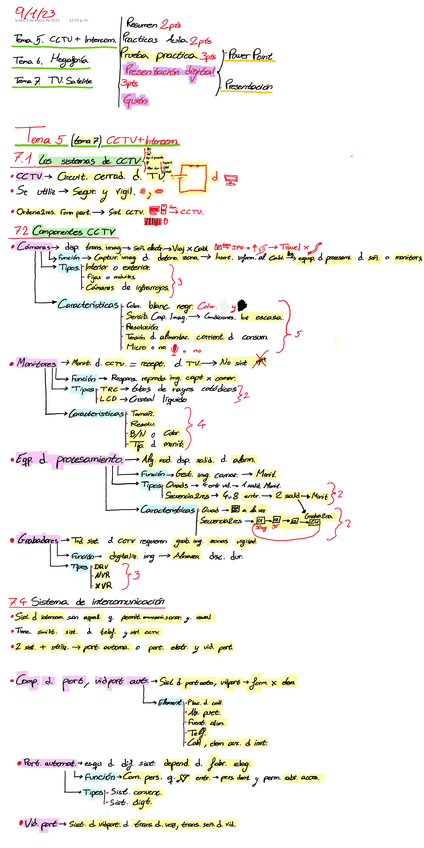 9/1/23
Resumen 2pts
Tema 5. CCTV + Intercom.
Practicas Aula 2pts
Tema 6. Megafonía
Prueba practica 3pts
Power Point
Tema 7. TV. Satelite
Presentación digital
3pts
Presentacion
Guión
Tema 5 (tema 7) CCTV + Intercom
7.1 Los sistemas de CCTV
• CCTV → Circuit. cerrad. d. TV
• Se utiliz → Segur. y vigil.
• Ordena2res. form part. → Sist. CCTV. CCTV.
7.2 Componentes CCTV
• Cámaras → disp. trans. imag → señ. electr → Viaj x Cabl.
Función → Captur. imag d. determ. zona
equip. d procesam. d señ. o monitores
Tipos Interior o exterior.
Fijas o móviles
Cámaras de infrarrojos
3
Características Color. blanc negr. Color. y
Sensib. Cap. Imag. → Condiciones. luz escasa.
Resolución
Tensión d alimentac. corrient. d consum.
Micro o no no
5
• Monitores → Monit. d CCTV. = recept. d TV. → No sint
Función → Respons. reprodu img. capt x camar.
Tipos TRC → tubos de rayos catódicos
LCD → Cristal líquido
2
Características Tamañ.
Resoluc.
B/N o Color
Tip d monit.
4
• Eqp. d procesamiento → Alg. nad. disp. salid. d alarm.
Función → Gest. img camar. → Monit.
Tipos Quads → 4 entr vid. → 1 salid. Monit.
Secuencia2res → 4-8 entr. → 2 salid → Monit
2
Graba2ra
Características Quad → a la vez
Secuencia2res →
2
• Grabadores → Td sist. d CCTV requieren grab. img zonas vigilad.
Función → digitaliz. img → Almacen disc. dur.
Tipos DRV
NVR
XVR
3
7.4 Sistema de intercomunicación
• Sist. d intercom. son aquel q. permit comunicacion. y visual
• Tiene. simili. sist. d telef. y sist cctv.
• 2 sist. + utiliz. → port. automa. o port. eletr. y vid port.
• Comp. d port, vidport aut. → Sist d portauto, vidport → form x elem
Element Plac. d call.
Abr. puert.
Fuent. alim.
Telf.
Cabl, elem aux. d inst.
• Port. automat. → esqu d dif sist. depend d. fabr. eleg.
Función → Com. pers. q. entr → pers dent y perm abr acces.
Tipos Sist. convenc
Sist. digit.
• Vid. port → Sist. d vidport. d trans. d voz, trans. señ. d vid.